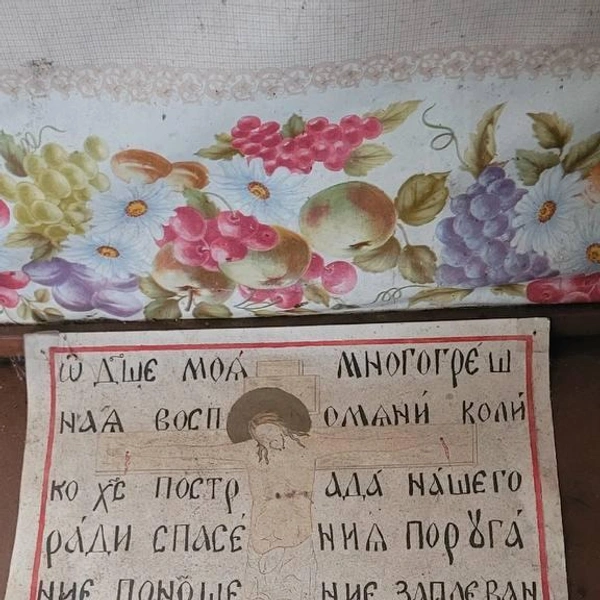 Ѡ҆ дш҃е моѧ̀ многогре́ш
на́ѧ восп омѧни́ коли́
ко хс҃ постр ада̀ на́шего
ра́ди спасе́ нїѧ порꙋга́
ние поноше ние заплеван